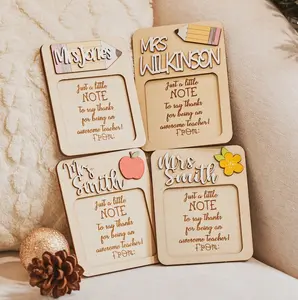 Mrs Jones
Just a little
NOTE
To say thanks
for being an
awesome teacher!
MRS
WILKINSON
Just a little
NOTE
To say thanks
for being an
awesome teacher!
From:
Mrs
Smith
Just a little
NOTE
To say thanks
for being an
awesome teacher!
From:
Mrs.
Smith
Just a little
NOTE
To say thanks
for being an
awesome teacher!
From: